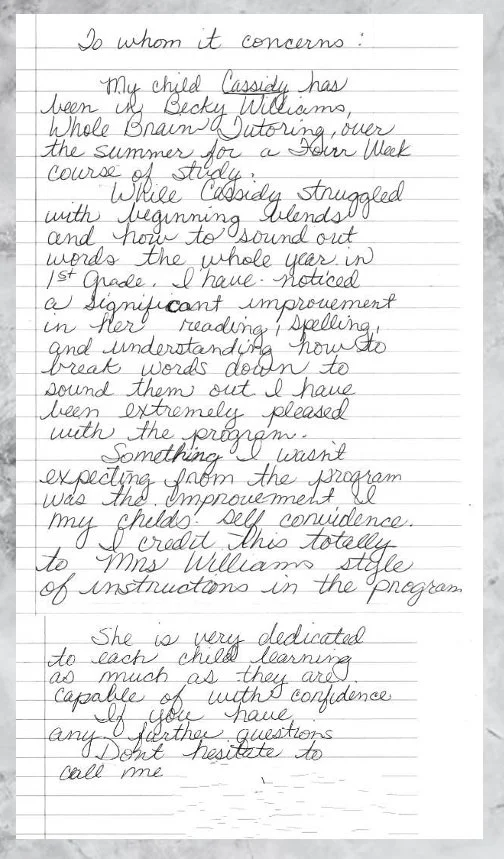 To whom it concerns :
My child Cassidy has
been in Becky Williams,
Whole Brain Tutoring, over
the summer for a Four Week
course of study.
While Cassidy struggled
with beginning blends
and how to sound out
words the whole year in
1st Grade. I have noticed
a significant improvement
in her reading, spelling,
and understanding how to
break words down to
sound them out I have
been extremely pleased
with the program.
Something I wasn't
expecting from the program
was the improvement I
my childs self convidence.
I credit this totally
to Mrs Williams style
of instructions in the program
She is very dedicated
to each child learning
as much as they are
capable of with confidence
If you have
any further questions
Dont hesitate to
call me